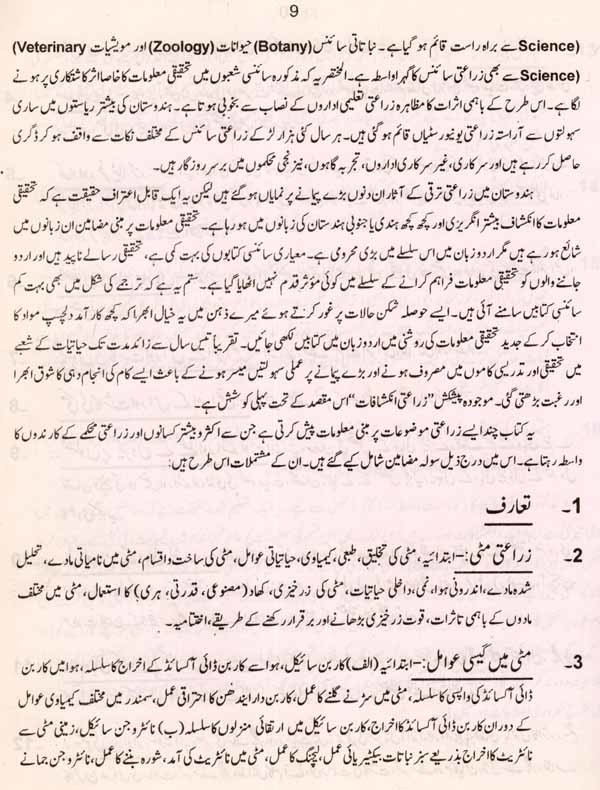 9
Science) سے براہ راست قائم ہو گیا ہے۔ نباتاتی سائنس (Botany) حیوانات (Zoology) اور مویشیات (Veterinary
Science) سے بھی زراعتی سائنس کا گہرا واسطہ ہے۔ المختصر یہ کہ مذکورہ سائنسی شعبوں میں تحقیقی معلومات کا خاصا اثر کاشتکاری پر ہونے
لگا ہے۔ اس طرح کے باہمی اثرات کا مظاہرہ زراعتی تعلیمی اداروں کے نصاب سے بخوبی ہوتا ہے۔ ہندوستان کی بیشتر ریاستوں میں ساری
سہولتوں سے آراستہ زراعتی یونیورسٹیاں قائم ہو گئی ہیں۔ ہر سال کئی ہزار لڑکے زراعتی سائنس کے مختلف نکات سے واقف ہو کر ڈگری
حاصل کر رہے ہیں اور سرکاری، غیر سرکاری اداروں، تجربہ گاہوں، نیز نجی محکموں میں برسر روزگار ہیں۔
ہندوستان میں زراعتی ترقی کے آثار ان دنوں بڑے پیمانے پر نمایاں ہو گئے ہیں لیکن یہ ایک قابل اعتراف حقیقت ہے کہ تحقیقی
معلومات کا انکشاف بیشتر انگریزی اور کچھ کچھ ہندی یا جنوبی ہندستان کی زبانوں میں ہو رہا ہے۔ تحقیقی معلومات پر مبنی مضامین ان زبانوں میں
شائع ہو رہے ہیں مگر اردو زبان میں اس سلسلے میں بڑی محرومی ہے۔ معیاری سائنسی کتابوں کی بہت کمی ہے، تحقیقی رسالے ناپید ہیں اور اردو
جاننے والوں کو تحقیقی معلومات فراہم کرانے کے سلسلے میں کوئی مؤثر قدم نہیں اٹھایا گیا ہے۔ ستم یہ ہے کہ ترجمے کی شکل میں بھی بہت کم
سائنسی کتابیں سامنے آئی ہیں۔ ایسے حوصلہ شکن حالات پر غور کرتے ہوئے میرے ذہن میں یہ خیال ابھرا کہ کچھ کارآمد دلچسپ مواد کا
انتخاب کر کے جدید تحقیقی معلومات کی روشنی میں اردو زبان میں کتابیں لکھی جائیں۔ تقریباً تیس سال سے زائد مدت تک حیاتیات کے شعبے
میں تحقیقی اور تدریسی کاموں میں مصروف ہونے اور بڑے پیمانے پر عملی سہولتیں میسر ہونے کے باعث ایسے کام کی انجام دہی کا شوق ابھرا
اور رغبت بڑھتی گئی۔ موجودہ پیشکش ”زراعتی انکشافات“ اس مقصد کے تحت پہلی کوشش ہے۔
یہ کتاب چند ایسے زراعتی موضوعات پر مبنی معلومات پیش کرتی ہے جن سے اکثر و بیشتر کسانوں اور زراعتی محکمے کے کارندوں کا
واسطہ رہتا ہے۔ اس میں درج ذیل سولہ مضامین شامل کیے گئے ہیں۔ ان کے مشتملات اس طرح ہیں:
1۔ تعارف
2۔ زراعتی مٹی:- ابتدائیہ، مٹی کی تخلیق، طبعی، کیمیاوی، حیاتیاتی عوامل، مٹی کی ساخت و اقسام، مٹی میں نامیاتی مادے، تحلیل
شدہ مادے، اندرونی ہوا، نمی، داخلی حیاتیات، مٹی کی زرخیزی، کھاد (مصنوعی، قدرتی، ہری) کا استعمال، مٹی میں مختلف
مادوں کے باہمی تاثرات، قوت زرخیزی بڑھانے اور برقرار رکھنے کے طریقے، اختتامیہ۔
3۔ مٹی میں گیسی عوامل:- ابتدائیہ (الف) کاربن سائیکل، ہوا سے کاربن ڈائی آکسائڈ کے اخراج کا سلسلہ، ہوا میں کاربن
ڈائی آکسائڈ کی واپسی کا سلسلہ، مٹی میں سڑنے گلنے کا عمل، کاربن دار ایندھن کا احتراقی عمل، سمندر میں مختلف کیمیاوی عوامل
کے دوران کاربن ڈائی آکسائڈ کا اخراج، کاربن سائیکل میں ارتقائی منزلوں کا سلسلہ (ب) نائٹروجن سائیکل، زمینی مٹی سے
نائٹریٹ کا اخراج بذریعے سبز نباتات، بیکٹیریائی عمل، لیچنگ کا عمل، مٹی میں نائٹریٹ کی آمد، شورہ بننے کا عمل، نائٹروجن جمانے